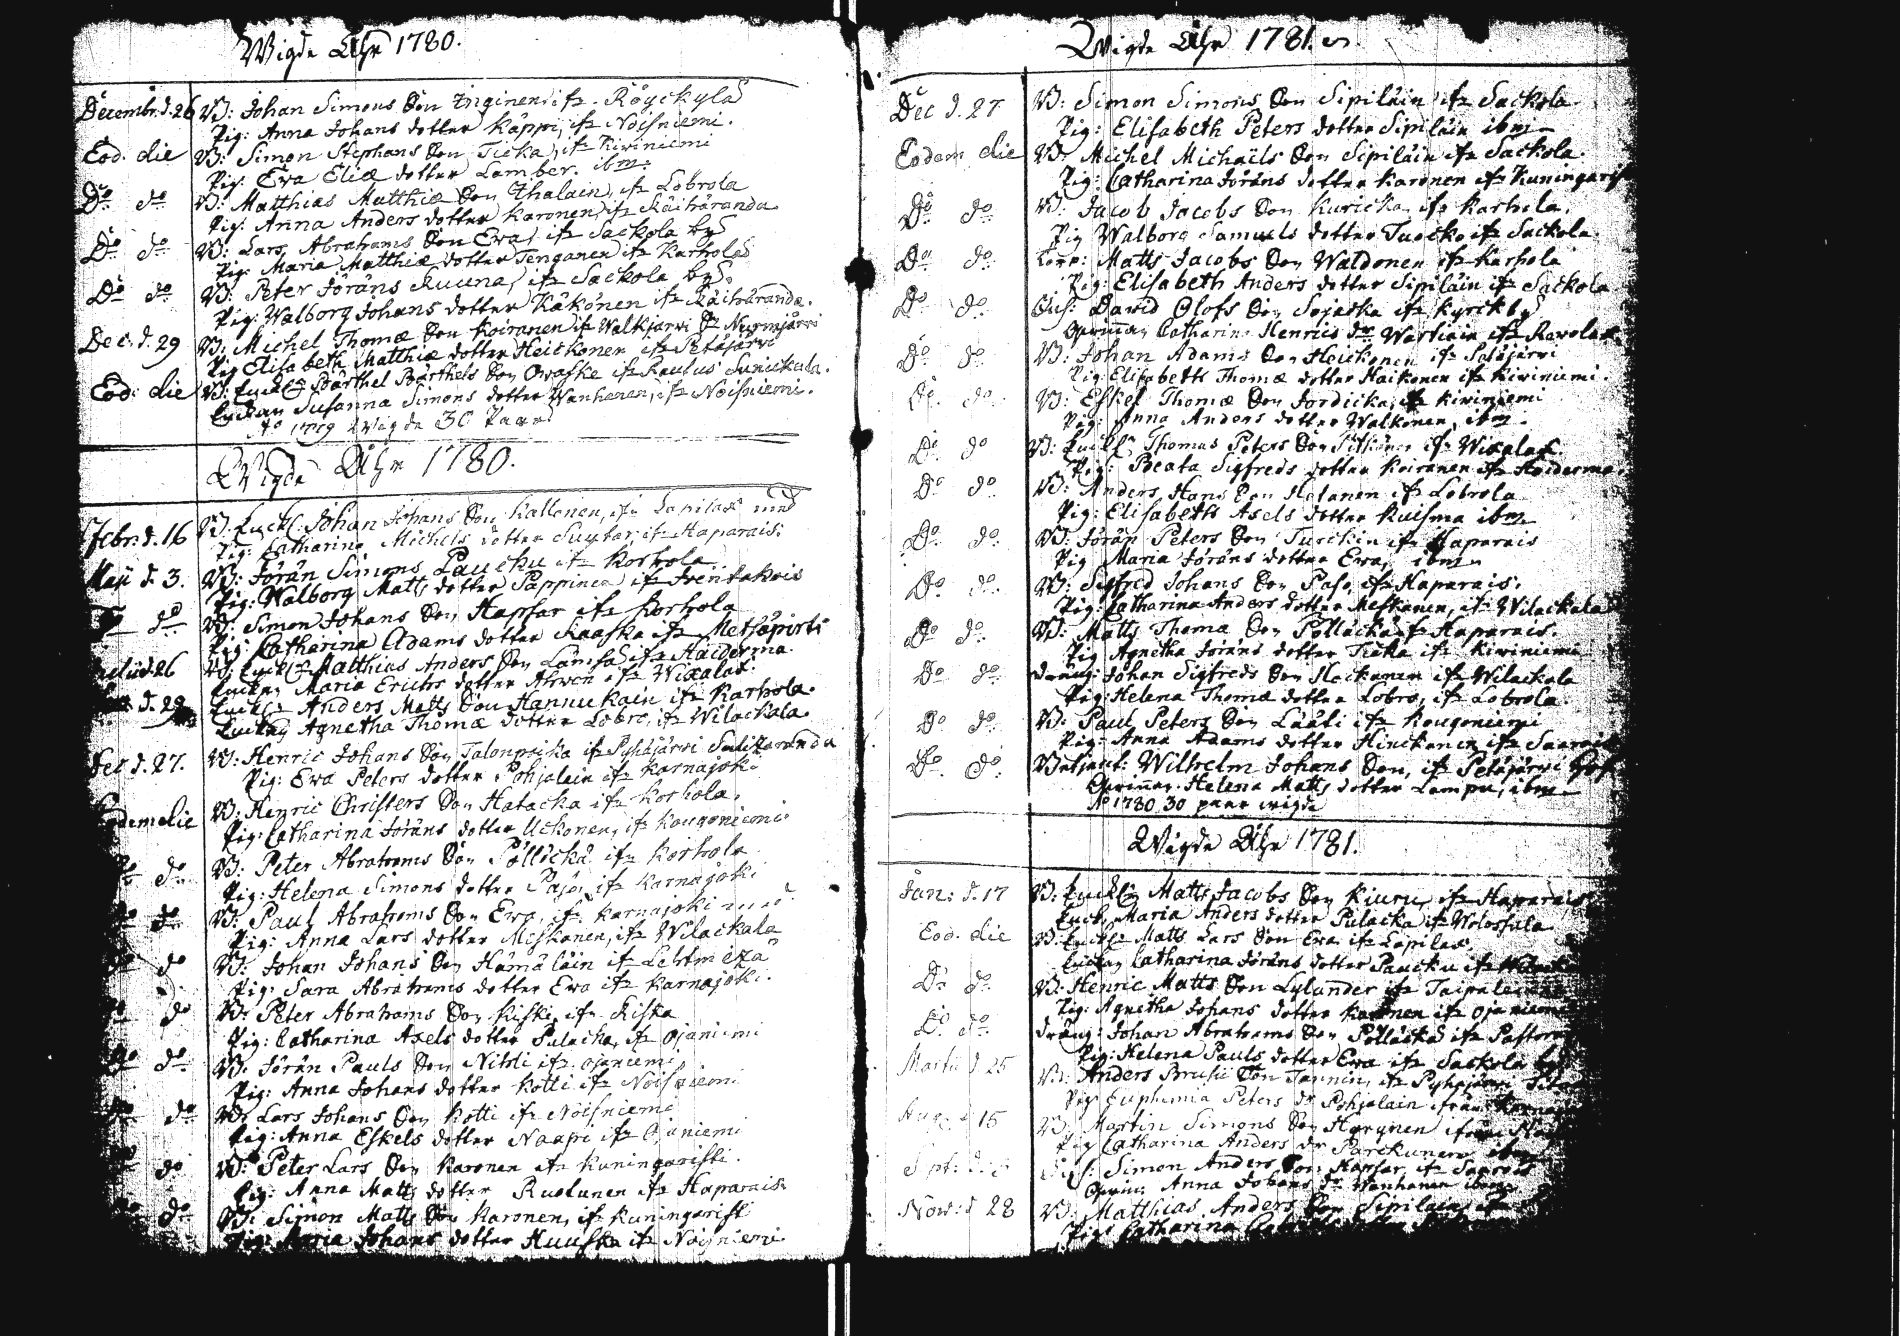 Wigde Åhr 1780.
Decembr. d. 26 B: Johan Simons Son Inginen ifr. Röyckylä
Pig: Anna Johans dotter Käppi, ifr Noisniemi.
Eod. die B: Simon Stephans Son Ticka, ifr Kiviniemi
Pig: Ewa Eliæ dotter Lamber. ibm:
Do do B: Matthias Matthiæ Son Ihalain, ifr Lobrola
Pig: Anna Anders dotter Karonen, ifr Räihäranda
Do do B: Lars Abrahams Son Ewa, ifr Sackola by
Pig: Maria Matthiæ dotter Tenganen ifr Karhola
Do do B: Peter Jöräns Kuuna, ifr Sackola by
Pig: Walborg Johans dotter Käkönen ifr Räihäranda.
Dec: d. 29 B: Michel Thomæ Son Koiranen ifr Walkjärvi Nurmijärvi
Pig Elisabeth Matthiæ dotter Heickonen ifr Petäjärvi
Eod: die B: Enckl: Barthel Barthels Son Orafke ifr Raulus Sunickula.
Enckan Susanna Simons dotter Wanhanen, ifr Noisniemi.
Ao 1779 Wigda 30 Paar
Wigde Åhr 1780.
Febr: d. 16 B: Enckl: Johan Johans Son Kallonen, ifr Lapilax med
Pig: Catharina Michels dotter Suutar, ifr Haparais.
Maji d. 3. B: Jörän Simons Paucku ifr Korhola
Pig: Walborg Matts dotter Pappinen ifr
do B: Simon Johans Son Hapsar ifr Korhola
Pig: Catharina Adams dotter Kaaska ifr Metsäpirti
d. 26 B: Enckl: Matthias Anders Son Länsä ifr Haiderma
Enckan Maria Erichs dotter Ahwen ifr Wixalax.
d. 29 Enckl: Anders Matts Son Hannukain ifr Karhola.
Enckan Agnetha Thomæ dotter Lobro, ifr Wilackala.
Dec d. 27. B: Henric Johans Son Talonpoika ifr Pyhäjärvi Salizaranda
Pig: Ewa Peters dotter Pohjalain ifr Karnajoki
Eodem die B: Henric Christers Son Hatacka ifr Korhola.
Pig: Catharina Jöräns dotter Uckonen, ifr Kougoniemi
Do do B: Peter Abrahams Son Pöllöckä ifr Korhola
Pig: Helena Simons dotter Pajo, ifr Karnajoki
Do do B: Paul Abrahams Son Ewa, ifr Karnajoki med
Pig: Anna Lars dotter Meskanen, ifr Wilackala
do B: Johan Johans Son Hämäläin ifr Lehtmeza
Pig: Sara Abrahams dotter Ewa ifr Karnajoki.
do B: Peter Abrahams Son Kiski, ifr Riska
Pig: Catharina Axels dotter Pulacka, ifr Ojaniemi
Do do B: Jörän Pauls Son Nikli ifr Ojaniemi
Pig: Anna Johans dotter Kotti ifr Noisniemi
Do do B: Lars Johans Son Kotti ifr Noisniemi
Pig: Anna Eskels dotter Naapi ifr Ojaniemi
do B: Peter Lars Son Karonen ifr Kuningaristi.
Pig: Anna Matts dotter Ruotunen ifr Haparais
do B: Simon Matts Son Karonen, ifr Kuningaristi
Pig: Maria Johans dotter Huuska ifr Noisniemi.
Wigde Åhr 1781.
Dec d. 27 B: Simon Simons Son Sipiläin ifr Sackola.
Pig: Elisabeth Peters dotter Sipiläin ibm
Eodem die B: Michel Michaëls Son Sipiläin ifr Sackola.
Pig: Catharina Jöräns dotter Karonen ifr Kuningarist
Do do B: Jacob Jacobs Son Kuricka, ifr Karhola.
Pig Walborg Samuels dotter Tuocko ifr Sackola.
Do do Corp: Matts Jacobs Son Waldonen ifr Karhola
Pig: Elisabeth Anders dotter Sipiläin ifr Sackola
Do do Inh: David Olofs Son Sojacka ifr Kyrckby
Qwinnan Catharina Henrics dr Wartiain ifr Rawolax.
Do do B: Johan Adams Son Heickonen ifr Petäjärvi
Pig: Elisabeth Thomæ dotter Haikonen ifr Kiviniemi.
Do do B: Eskel Thomæ Son Jordicka, ifr Kiviniemi
Pig: Anna Anders dotter Walkonen, ibm.
Do do B: Enckl: Thomas Peters Son Pitkänen ifr Wixalax
Pig: Beata Sigfreds dotter Koiranen ifr Haiderma.
Do do B: Anders Hans Son Hotanen ifr Lobrola
Pig: Elisabeth Axels dotter Kuisma ibm
Do do B: Jörän Peters Son Turckin ifr Haparais
Pig Maria Jöräns dotter Ewa, ibm
Do do B: Sigfred Johans Son Paso ifr Haparais.
Pig: Catharina Anders dotter Meskanen, ifr Wilackala
Do do B: Matts Thomæ Son Pöllöckä ifr Haparais.
Pig Agnetha Jöräns dotter Ticka ifr Kiviniemi
Do do Dräng: Johan Sigfreds Son Heckonen ifr Wilackala
Pig: Helena Thomæ dotter Lobro, ifr Lobrola.
Do do B: Paul Peters Son Lääti ifr Kougoniemi
Pig: Anna Adams dotter Hinckanen ifr Saarois
Do do Betjent: Wilhelm Johans Son, ifr Petäjärvi Hof
Qwinnan: Helena Matts dotter Lampu, ibm
Ao 1780 30 paar wigde
Wigde Åhr 1781.
Jan: d. 17 B: Enckl: Matts Jacobs Son Kiuru, ifr Haparais
Enck. Maria Anders dotter Pulacka ifr Wolossula
Eod. die B: Enckl: Matts Lars Son Ewa ifr Lapilax
Enckan Catharina Jöräns dotter Paucku ifr
Do do B: Henric Matts Son Lylander ifr Taipale
Pig: Agnetha Johans dotter Karonen ifr Ojaniemi
Do do Dräng: Johan Abrahams Son Pöllöckä ifr Pastor
Pig: Helena Pauls dotter Ewa ifr Sackola by
Martii d 25 B: Anders Brusii Son Tannin, ifr Pyhäjärvi
Pig Euphemia Peters dr Pohjalain ifrån
Aug. d 15 B: Martin Simons Son Hyrynen ifrån
Pig Catharina Anders dr Parckunen, ibm
Sept: d. Inh: Simon Anders Son Hapsar, ifr Saarois
Qwin: Anna Johans dr Wanhanen ibm
Nov: d 28 B: Matthias Anders Son Sipiläin ifr
Pig: Catharina